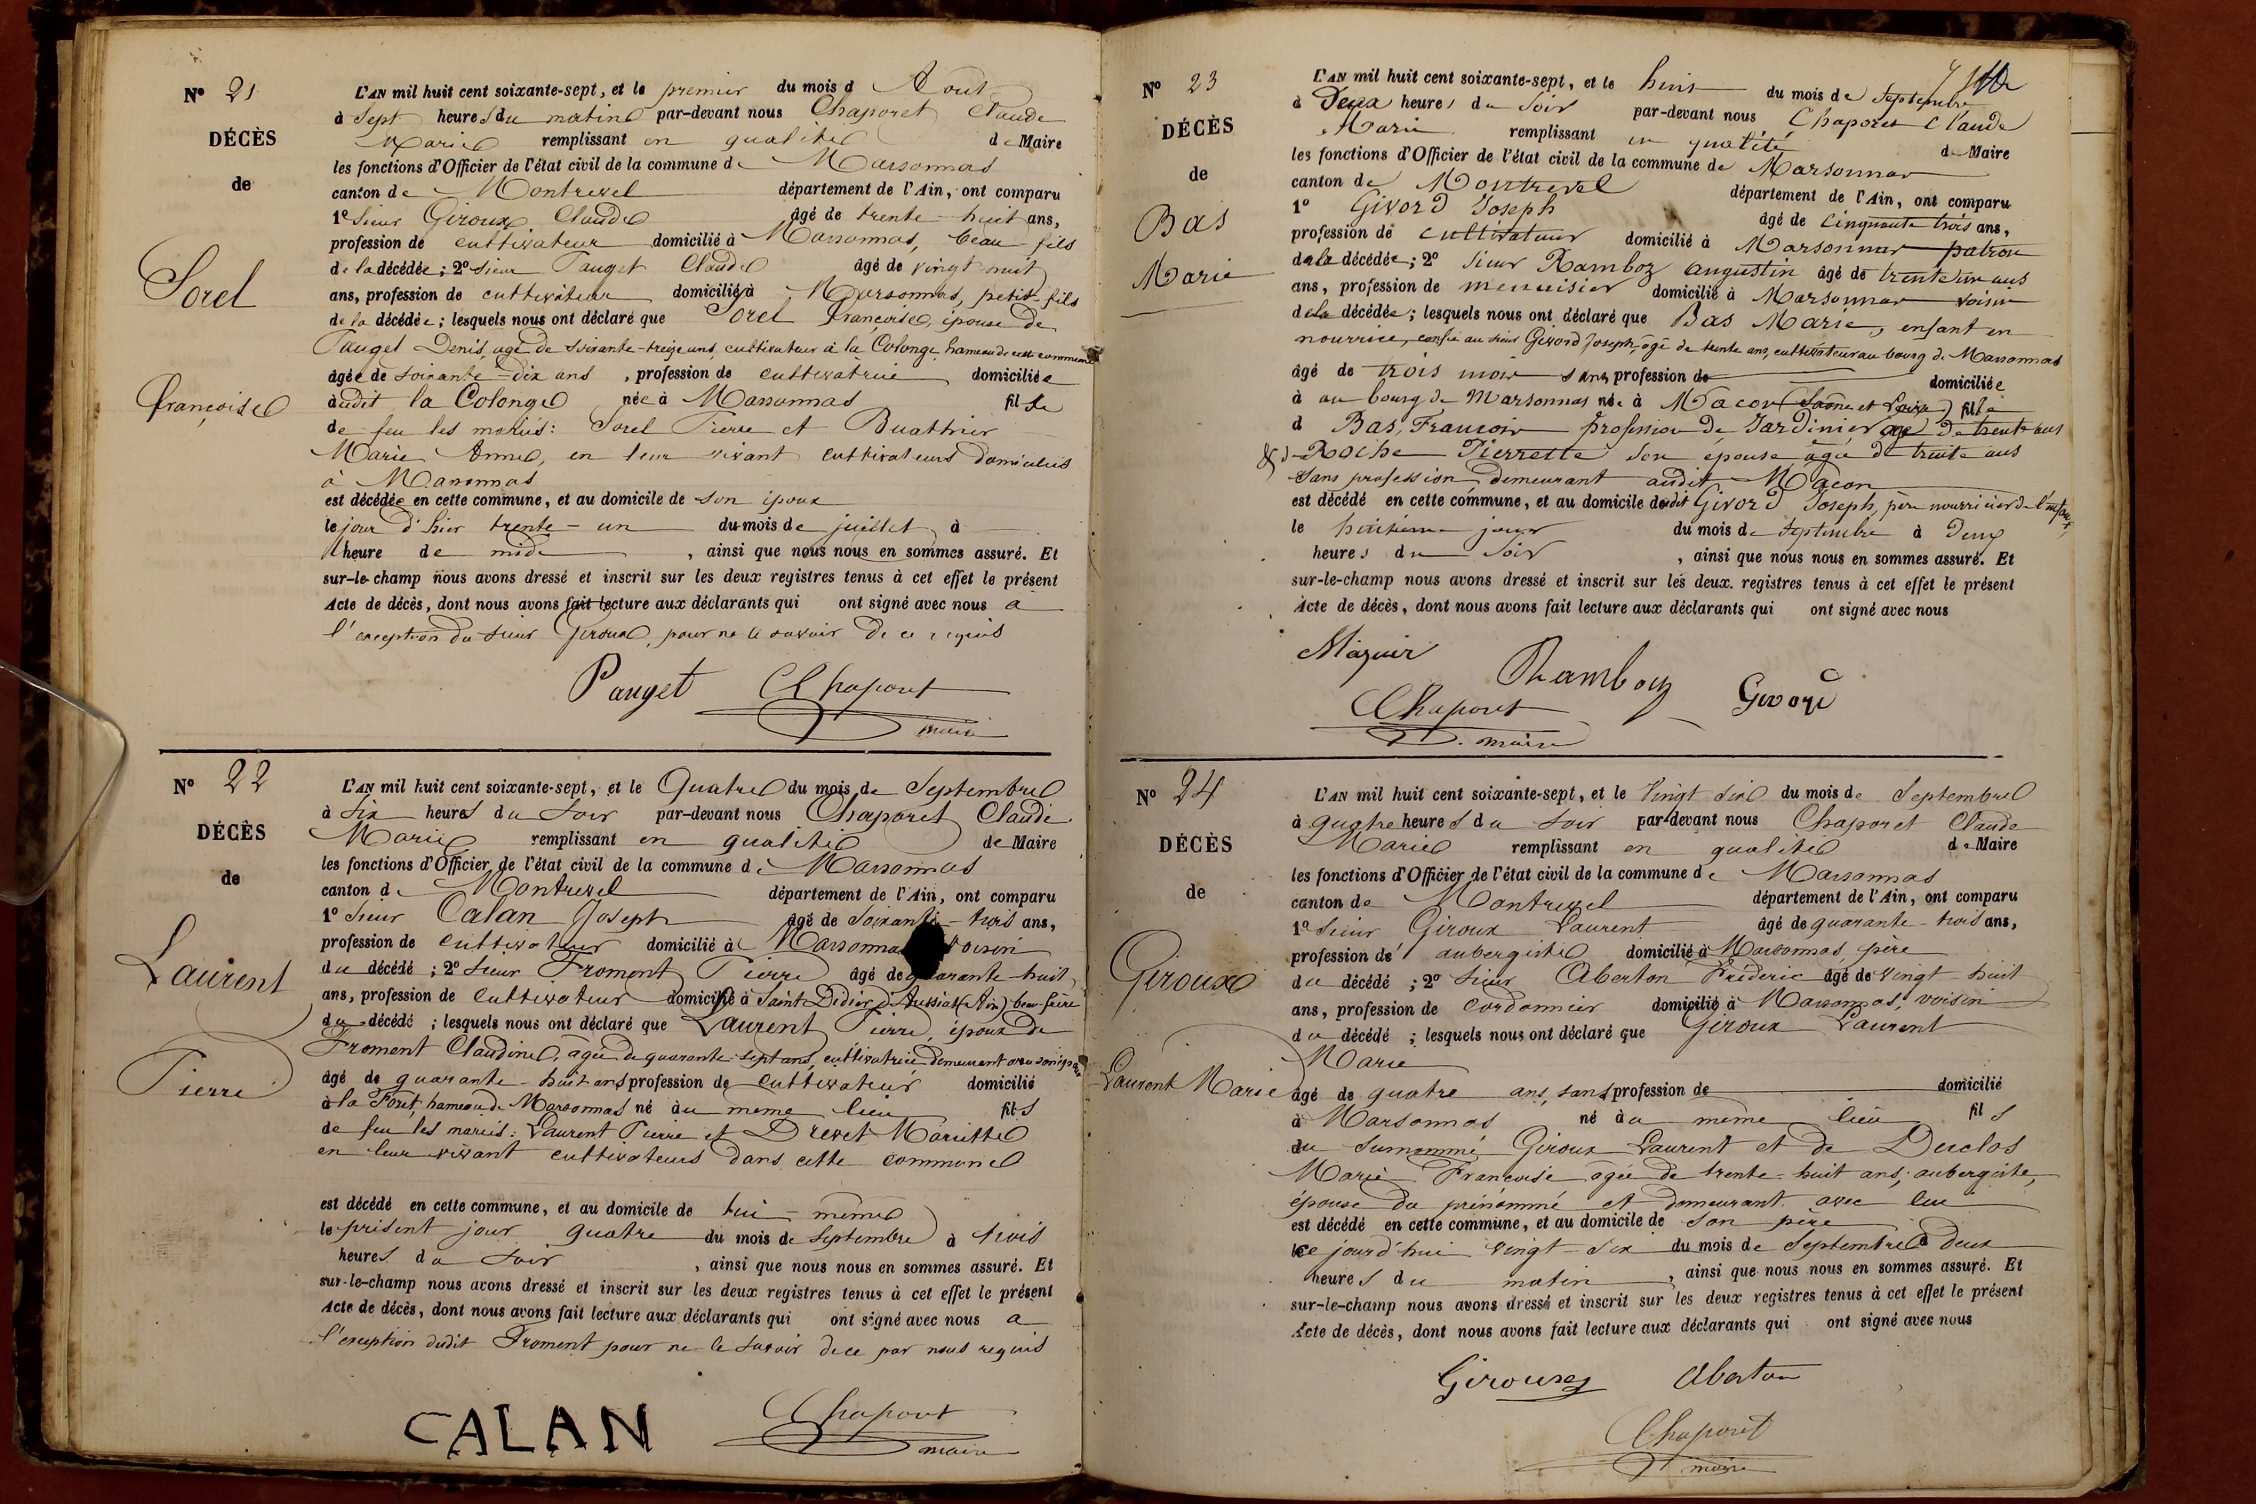 N° 21
DÉCÈS
de
Sorel
Françoise
L'AN mil huit cent soixante-sept, et le premier du mois d Aout
à sept heures du matin par-devant nous Chaporet Claude
Marie remplissant en qualité de Maire
les fonctions d'Officier de l'état civil de la commune de Marsonnas
canton de Montrevel département de l'Ain, ont comparu
1° Sieur Giroux Claude âgé de trente-huit ans,
profession de cultivateur domicilié à Marsonnas, beau fils
de la décédée; 2° sieur Pauget Claude âgé de vingt-huit
ans, profession de cultivateur domicilié à Marsonnas, petit-fils
de la décédée; lesquels nous ont déclaré que Sorel Françoise, épouse de
Pauget Denis, agé de soixante-treize ans, cultivateur à la Colonge, hameau de cette commune
âgée de soixante-dix ans, profession de cultivatrice domiciliée
audit la Colonge née à Marsonnas fille
de feu les mariés: Sorel Pierre et Buathier
Marie Anne, en leur vivant cultivateurs domiciliés
à Marsonnas
est décédée en cette commune, et au domicile de son époux
le jour d'hier trente-un du mois de juillet à
heure de midi, ainsi que nous nous en sommes assuré. Et
sur-le-champ nous avons dressé et inscrit sur les deux registres tenus à cet effet le présent
Acte de décès, dont nous avons fait lecture aux déclarants qui ont signé avec nous a
l'exception du sieur Giroux, pour ne le savoir de ce requis
Pauget Chaporet
maire
N° 22
DÉCÈS
de
Laurent
Pierre
L'AN mil huit cent soixante-sept, et le Quatre du mois de Septembre
à six heures du soir par-devant nous Chaporet Claude
Marie remplissant en qualité de Maire
les fonctions d'Officier de l'état civil de la commune de Marsonnas
canton de Montrevel département de l'Ain, ont comparu
1° Sieur Calan Joseph âgé de soixante-trois ans,
profession de cultivateur domicilié à Marsonnas voisin
du décédé; 2° sieur Froment Pierre âgé de quarante-huit
ans, profession de cultivateur domicilié à Saint Didier d'Aussiat (Ain) beau-frère
du décédé; lesquels nous ont déclaré que Laurent Pierre, époux de
Froment Claudine, agée de quarante-sept ans, cultivatrice demeurant avec son époux
âgé de quarante-huit ans profession de cultivateur domicilié
à la Foret, hameau de Marsonnas né au meme lieu fils
de feu les mariés: Laurent Pierre et Drevet Mariette
en leur vivant cultivateurs dans cette commune
est décédé en cette commune, et au domicile de lui-même
le présent jour quatre du mois de septembre à trois
heures du soir, ainsi que nous nous en sommes assuré. Et
sur-le-champ nous avons dressé et inscrit sur les deux registres tenus à cet effet le présent
Acte de décès, dont nous avons fait lecture aux déclarants qui ont signé avec nous a
l'exception dudit Froment pour ne le savoir de ce par nous requis
CALAN Chaporet
maire
N° 23
DÉCÈS
de
Bas
Marie
L'AN mil huit cent soixante-sept, et le huit du mois de septembre
à Deux heures du soir par-devant nous Chaporet Claude
Marie remplissant en qualité de Maire
les fonctions d'Officier de l'état civil de la commune de Marsonnas
canton de Montrevel département de l'Ain, ont comparu
1° Givord Joseph âgé de cinquante trois ans,
profession de cultivateur domicilié à Marsonnas patron
de la décédée; 2° sieur Ramboz augustin âgé de trente un ans
ans, profession de menuisier domicilié à Marsonnas voisin
de la décédée; lesquels nous ont déclaré que Bas Marie, enfant en
nourrice, confié au sieur Givord Joseph, âgé de trente ans, cultivateur au bourg de Marsonnas
âgé de trois mois sans profession de domiciliée
à au bourg de Marsonnas née à Macon (Saône et Loire) fille
d Bas, François profession de Jardinier agé de trente ans
& de Roche Pierrette son épouse agée de trente ans
sans profession demeurant audit Macon
est décédé en cette commune, et au domicile dudit Givord Joseph, père nourricier de l'enfant,
le huitième jour du mois de septembre à Deux
heures du soir, ainsi que nous nous en sommes assuré. Et
sur-le-champ nous avons dressé et inscrit sur les deux registres tenus à cet effet le présent
Acte de décès, dont nous avons fait lecture aux déclarants qui ont signé avec nous
Ramboz Givord
Chaporet
maire
N° 24
DÉCÈS
de
Giroux
Laurent Marie
L'AN mil huit cent soixante-sept, et le Vingt six du mois de Septembre
à quatre heures du soir par-devant nous Chaporet Claude
Marie remplissant en qualité de Maire
les fonctions d'Officier de l'état civil de la commune de Marsonnas
canton de Montrevel département de l'Ain, ont comparu
1° Sieur Giroux Laurent âgé de quarante-trois ans,
profession de aubergiste domicilié à Marsonnas, père
du décédé; 2° sieur Aberton Fréderic âgé de vingt-huit
ans, profession de cordonnier domicilié à Marsonnas, voisin
du décédé; lesquels nous ont déclaré que Giroux Laurent
Marie
âgé de quatre ans, sans profession de domicilié
à Marsonnas né au meme lieu fils
du surnommé Giroux Laurent et de Duclos
Marie Françoise agée de trente-huit ans, aubergiste,
épouse du prénommé et demeurant avec lui
est décédé en cette commune, et au domicile de son père
ce jourd'hui vingt-six du mois de Septembre à deux
heures du matin, ainsi que nous nous en sommes assuré. Et
sur-le-champ nous avons dressé et inscrit sur les deux registres tenus à cet effet le présent
Acte de décès, dont nous avons fait lecture aux déclarants qui ont signé avec nous
Giroux Aberton
Chaporet
maire